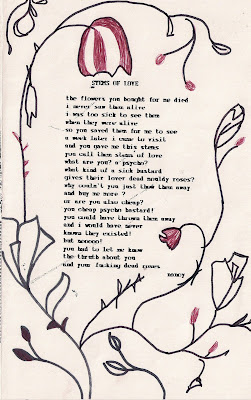 STEMS OF LOVE
the flowers you bought for me died
i never saw them alive
i was too sick to see them
when they were alive
so you saved them for me to see
a week later i came to visit
and you gave me this stems
you call them stems of love
what are you? a psycho?
what kind of a sick bastard
gives their lover dead mouldy roses?
why couln't you just thow then away
and buy me more ?
or are you also cheap?
you cheap psycho bastard!
you could have thrown them away
and i would have never
known they existed!
but noooooo!
you had to let me know
the about you
and your fucking dead roses
nancy